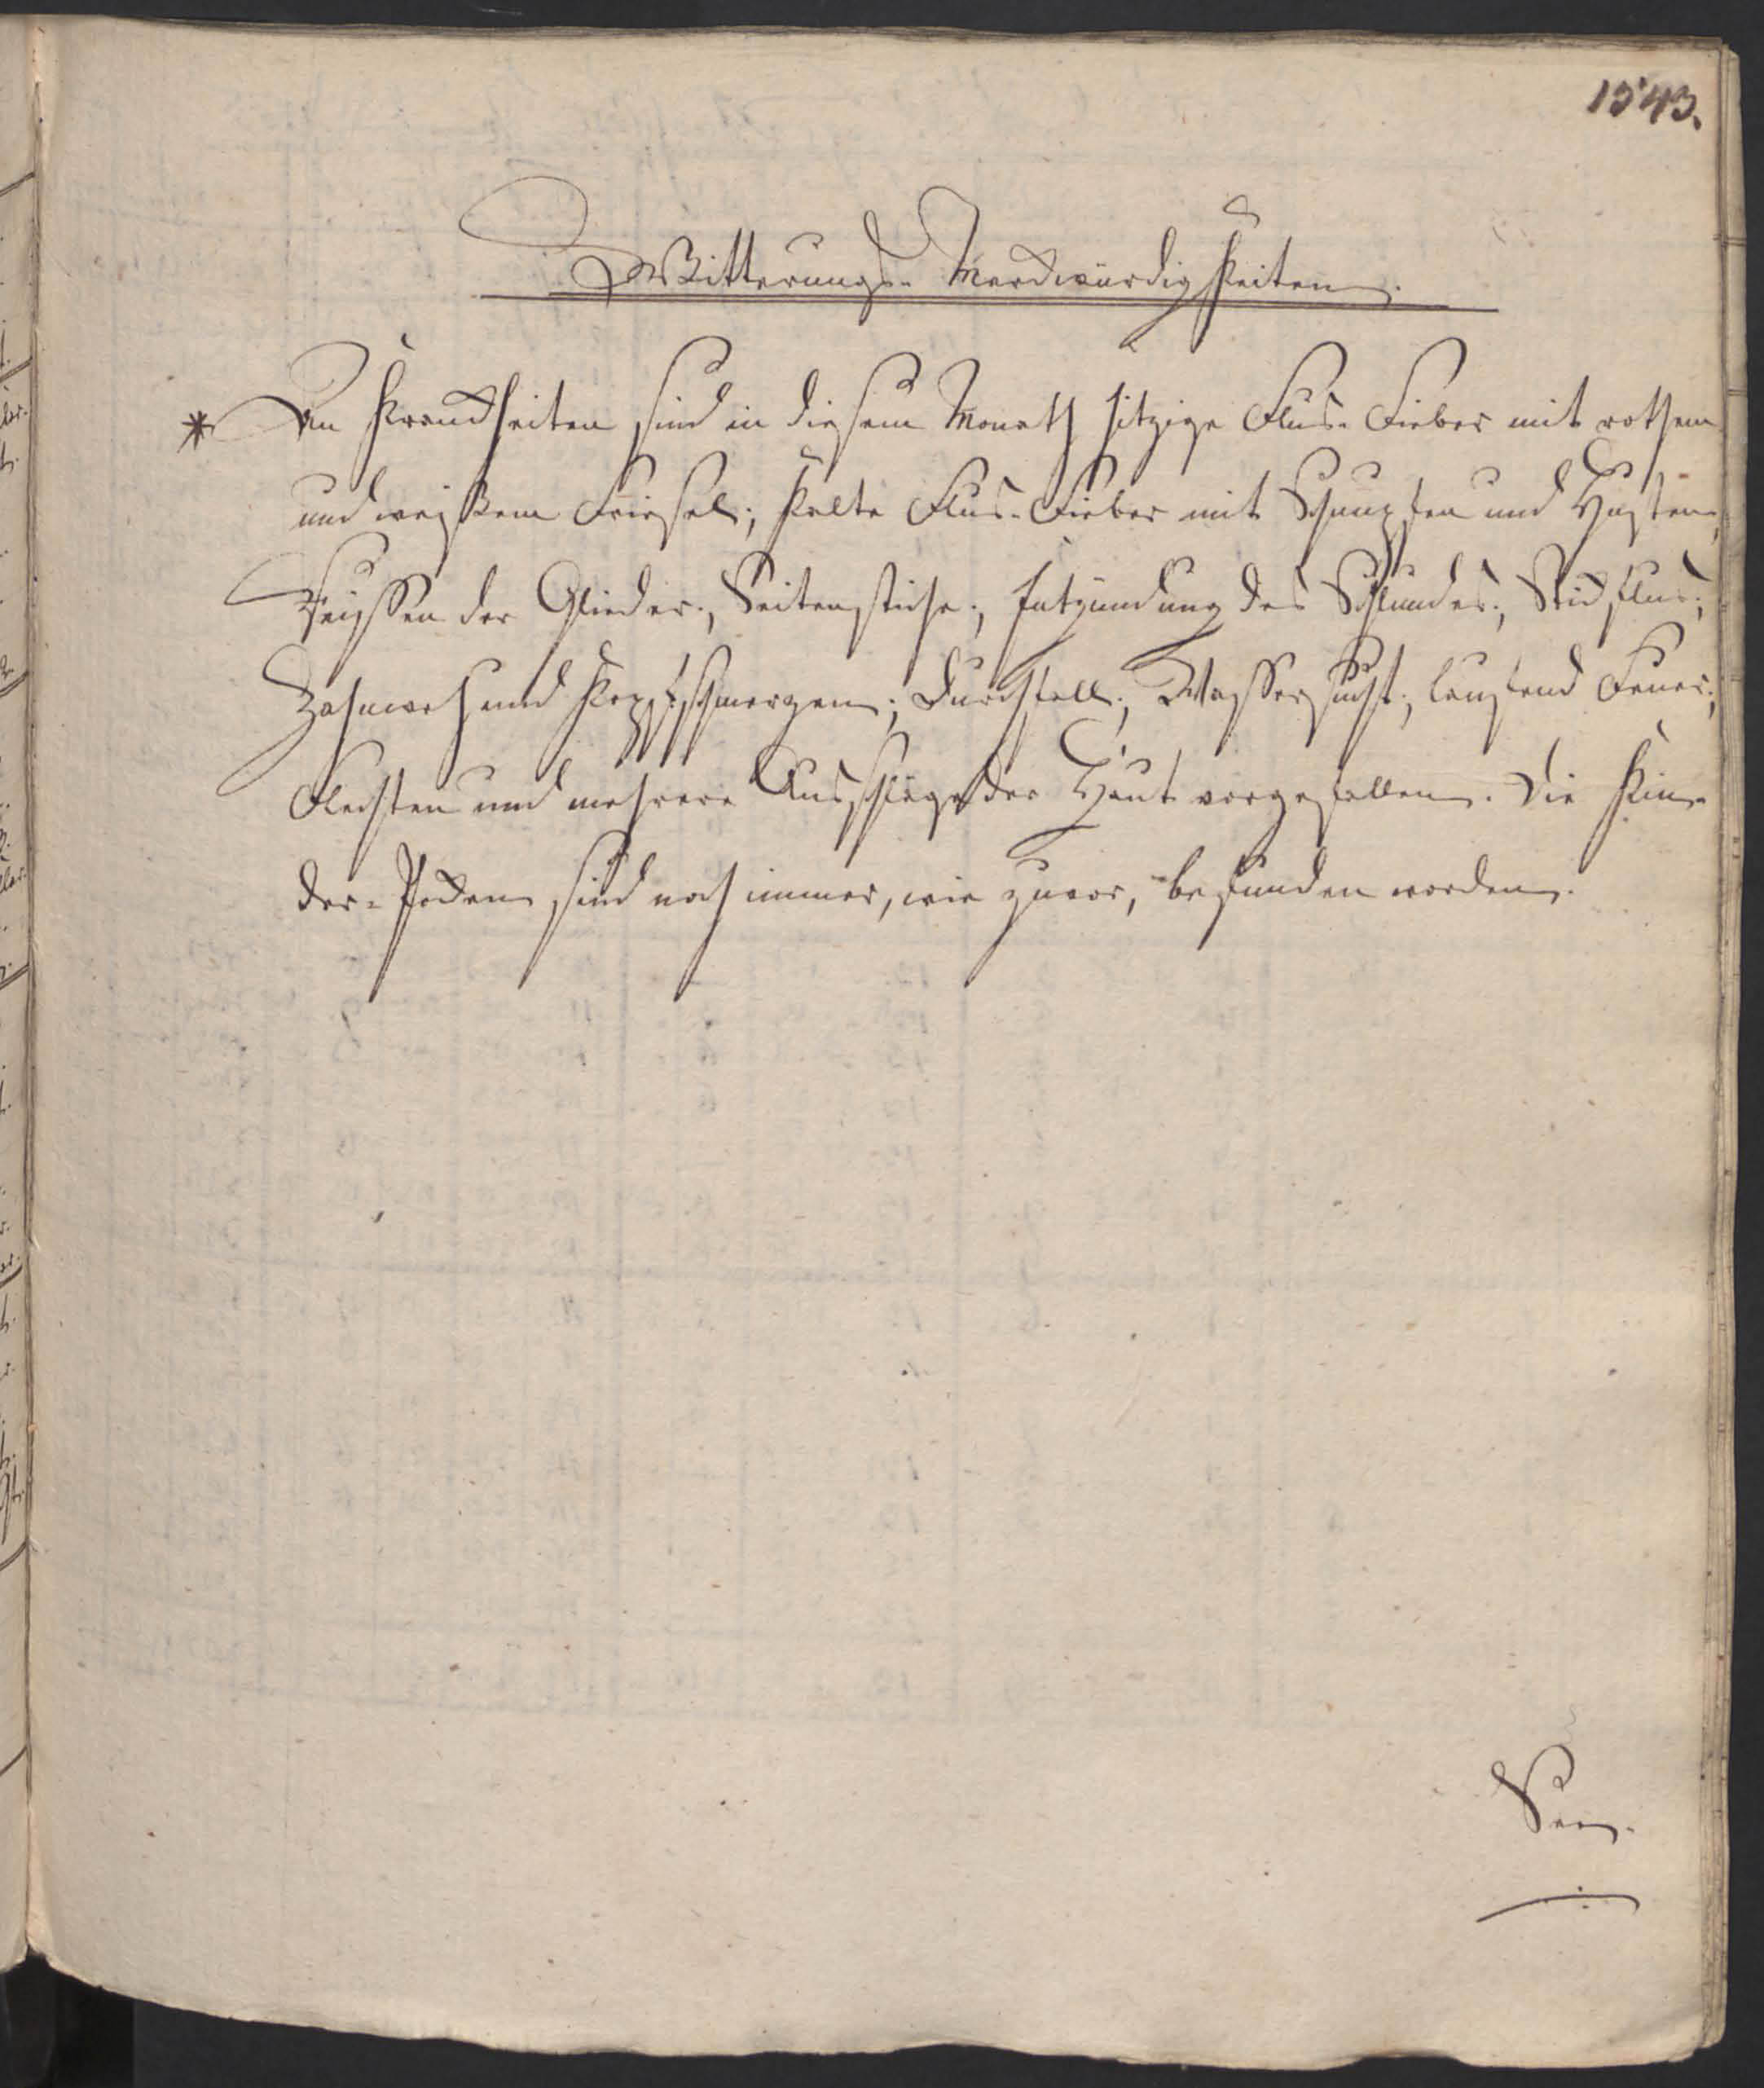 1543.
Witterungs-Merckwürdigkeiten.
* An Kranckheiten sind in diesem Monath hitzige Flus-Fieber mit rothem
und weißem Friesel; kalte Flus-Fieber mit Schnupfen und Husten;
Reyssen der Glieder; Seitenstiche; Entzündung des Schlundes; Stickflus;
Zahnweh und Kopfschmerzen; Durchfall; Wassersucht; laufend Feuer;
Flechten und mehrere Ausschläge der Haut vorgefallen. Die Kin-
der-Pocken sind noch immer, wie zuvor, befunden worden.